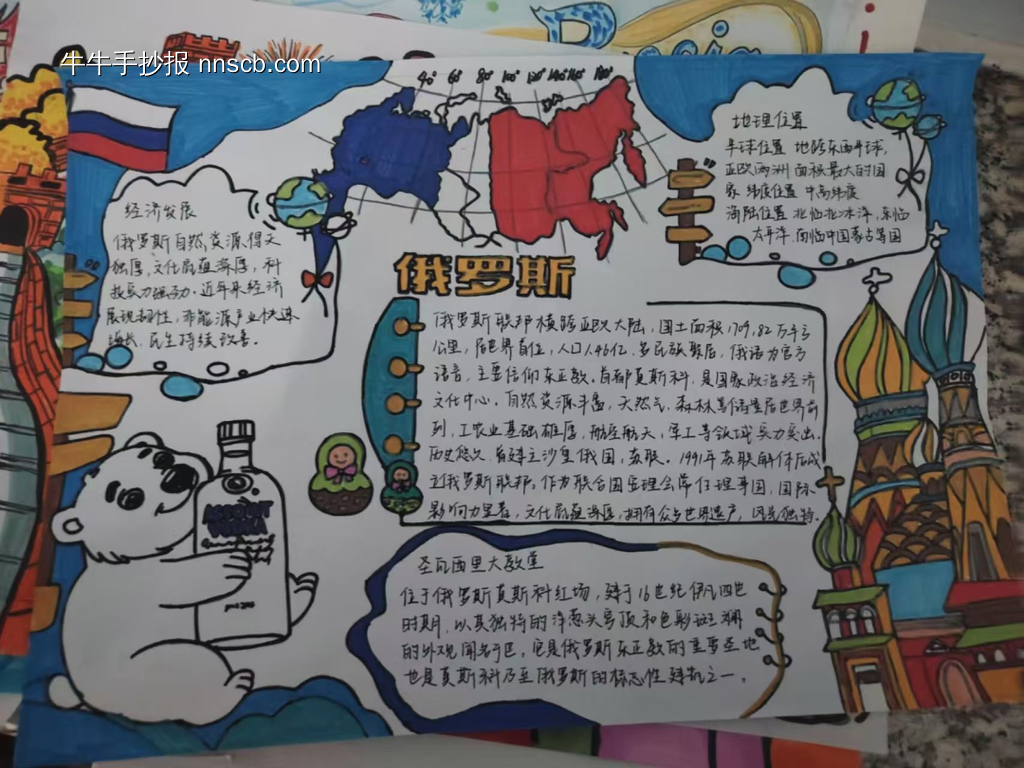 牛牛手抄报 nnscb.com
Russia
40° 60° 80° 100° 120° 140° 160° 180°
地理位置
半球位置 地跨东西半球,
亚欧两洲 面积最大的国
家 纬度位置 中高纬度
海陆位置 北临北冰洋,东临
太平洋.南临中国蒙古等国
经济发展
俄罗斯自然资源得天
独厚,文化底蕴深厚,科
技实力强劲.近年来经济
展现韧性,非能源产业快速
增长,民生持续改善。
俄罗斯
俄罗斯联邦横跨亚欧大陆,国土面积1709.82万平方
公里,居世界首位,人口1.46亿.多民族聚居,俄语为官方
语言,主要信仰东正教.首都莫斯科,是国家政治经济
文化中心.自然资源丰富,天然气,森林等储量居世界前
列,工农业基础雄厚,航空航天,军工等领域实力突出.
历史悠久,曾建立沙皇俄国,苏联.1991年苏联解体后成
立俄罗斯联邦.作为联合国安理会常任理事国,国际
影响力显著,文化底蕴深厚,拥有众多世界遗产,风景独特.
ABSOLUT
VODKA
圣瓦西里大教堂
位于俄罗斯莫斯科红场,建于16世纪伊凡四世
时期,以其独特的洋葱头穹顶和色彩斑斓
的外观闻名于世,它是俄罗斯东正教的重要圣地
也是莫斯科乃至俄罗斯的标志性建筑之一。